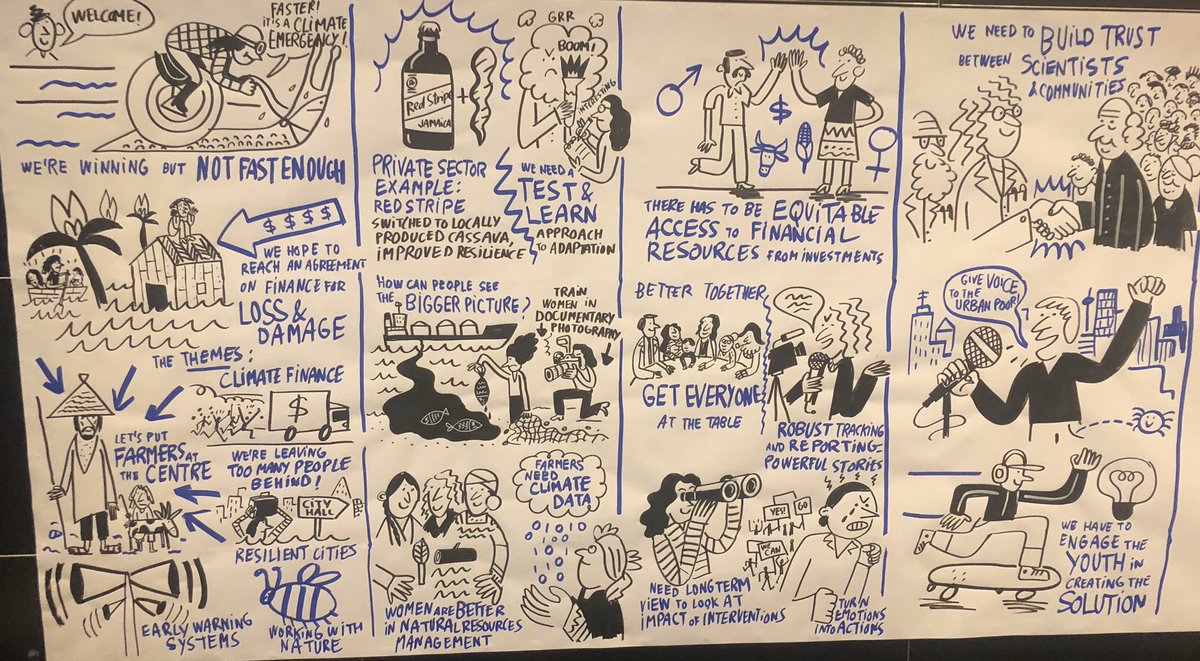 WELCOME!
FASTER!
IT'S A CLIMATE
EMERGENCY!
WE'RE WINNING BUT NOT FAST ENOUGH
$ $ $ $
WE HOPE TO
REACH AN AGREEMENT
ON FINANCE FOR
LOSS &
DAMAGE
THE THEMES:
CLIMATE FINANCE
$
LET'S PUT
FARMERS AT
THE CENTRE
WE'RE LEAVING
TOO MANY PEOPLE
BEHIND!
CITY
HALL
RESILIENT CITIES
EARLY WARNING
SYSTEMS
WORKING WITH
NATURE
Red Stripe
JAMAICA
+
PRIVATE SECTOR
EXAMPLE:
RED STRIPE
SWITCHED TO LOCALLY
PRODUCED CASSAVA,
IMPROVED RESILIENCE
GRR
BOOM!
INTERESTING
WE NEED A
TEST &
LEARN
APPROACH
TO ADAPTATION
HOW CAN PEOPLE SEE
THE BIGGER PICTURE?
TRAIN
WOMEN IN
DOCUMENTARY
PHOTOGRAPHY
WOMEN ARE BETTER
IN NATURAL RESOURCES
MANAGEMENT
FARMERS
NEED
CLIMATE
DATA
$
THERE HAS TO BE EQUITABLE
ACCESS TO FINANCIAL
RESOURCES FROM INVESTMENTS
BETTER TOGETHER
GET EVERYONE
AT THE TABLE
ROBUST TRACKING
AND REPORTING-
POWERFUL STORIES
NEED LONGTERM
VIEW TO LOOK AT
IMPACT OF INTERVENTIONS
YES!
GO
WE CAN
TURN
EMOTIONS
INTO ACTIONS
WE NEED TO BUILD TRUST
BETWEEN SCIENTISTS
& COMMUNITIES
GIVE VOICE
TO THE
URBAN POOR!
WE HAVE TO
ENGAGE THE
YOUTH IN
CREATING THE
SOLUTION